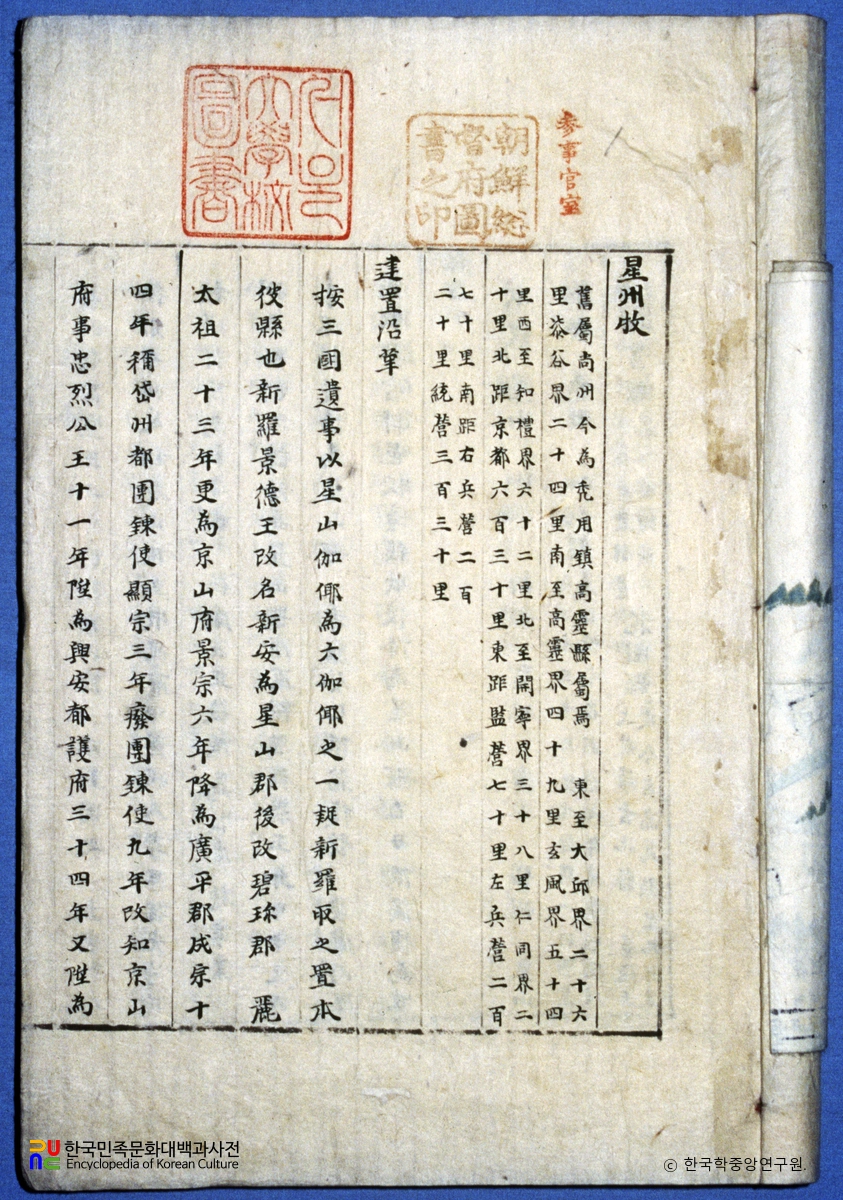 參事官室
朝鮮総
督府圖
書之印
大學校
圖書
星州牧
舊屬尚州今為禿用鎮高靈縣屬焉 東至大邱界二十六
里漆谷界二十四里南至高靈界四十九里玄風界五十四
里西至知禮界六十二里北至開寧界三十八里仁同界二
十里北距京都六百三十里東距監營七十里左兵營二百
七十里南距右兵營二百
二十里統營三百三十里
建置沿革
按三國遺事以星山伽倻為六伽倻之一疑新羅取之置本
彼縣也新羅景德王改名新安為星山郡後改碧珍郡 麗
太祖二十三年更為京山府景宗六年降為廣平郡成宗十
四年稱岱州都團鍊使顯宗三年廢團鍊使九年改知京山
府事忠烈公王十一年陞為興安都護府三十四年又陞為
한국민족문화대백과사전
Encyclopedia of Korean Culture
© 한국학중앙연구원.